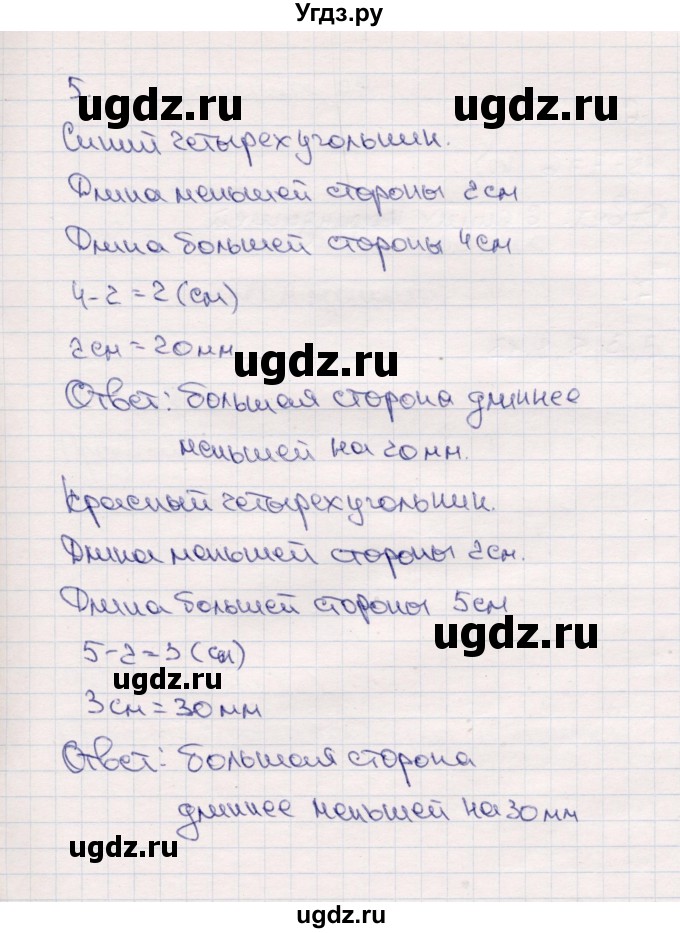 Угдз.ру
5.
ugdz.ru ugdz.ru
Синий четырехугольник.
Длина меньшей стороны 2см
Длина большей стороны 4см
4-2=2(см)
2см=20мм
ugdz.ru
Ответ: большая сторона длиннее
меньшей на 20мм.
Красный четырехугольник.
Длина меньшей стороны 2см.
Длина большей стороны 5см
ugdz.ru
5-2=3(см)
ugdz.ru
3см=30мм
Ответ: большая сторона
длиннее меньшей на 30мм
ugdz.ru
ugdz.ru